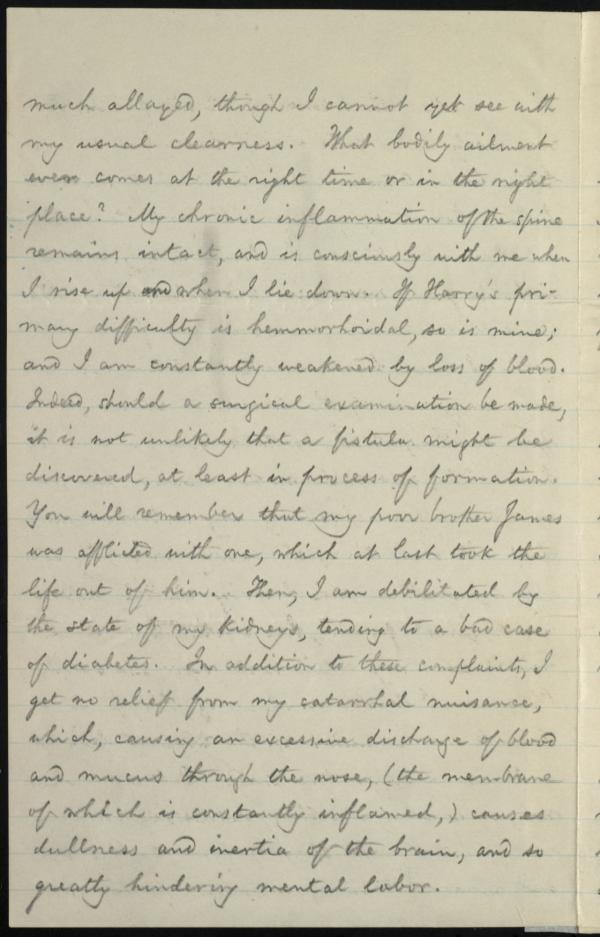 much allayed, though I cannot yet see with
my usual clearness. What bodily ailment
ever comes at the right time or in the right
place? My chronic inflammation of the spine
remains intact, and is consciously with me when
I rise up and when I lie down. If Harry's pri-
mary difficulty is hemmorhoidal, so is mine;
and I am constantly weakened by loss of blood.
Indeed, should a surgical examination be made,
it is not unlikely that a fistula might be
discovered, at least in process of formation.
You will remember that my poor brother James
was afflicted with one, which at last took the
life out of him. Then, I am debilitated by
the state of my kidneys, tending to a bad case
of diabetes. In addition to these complaints, I
get no relief from my catarrhal nuisance,
which, causing an excessive discharge of blood
and mucus through the nose, (the membrane
of which is constantly inflamed,) causes
dullness and inertia of the brain, and so
greatly hindering mental labor.